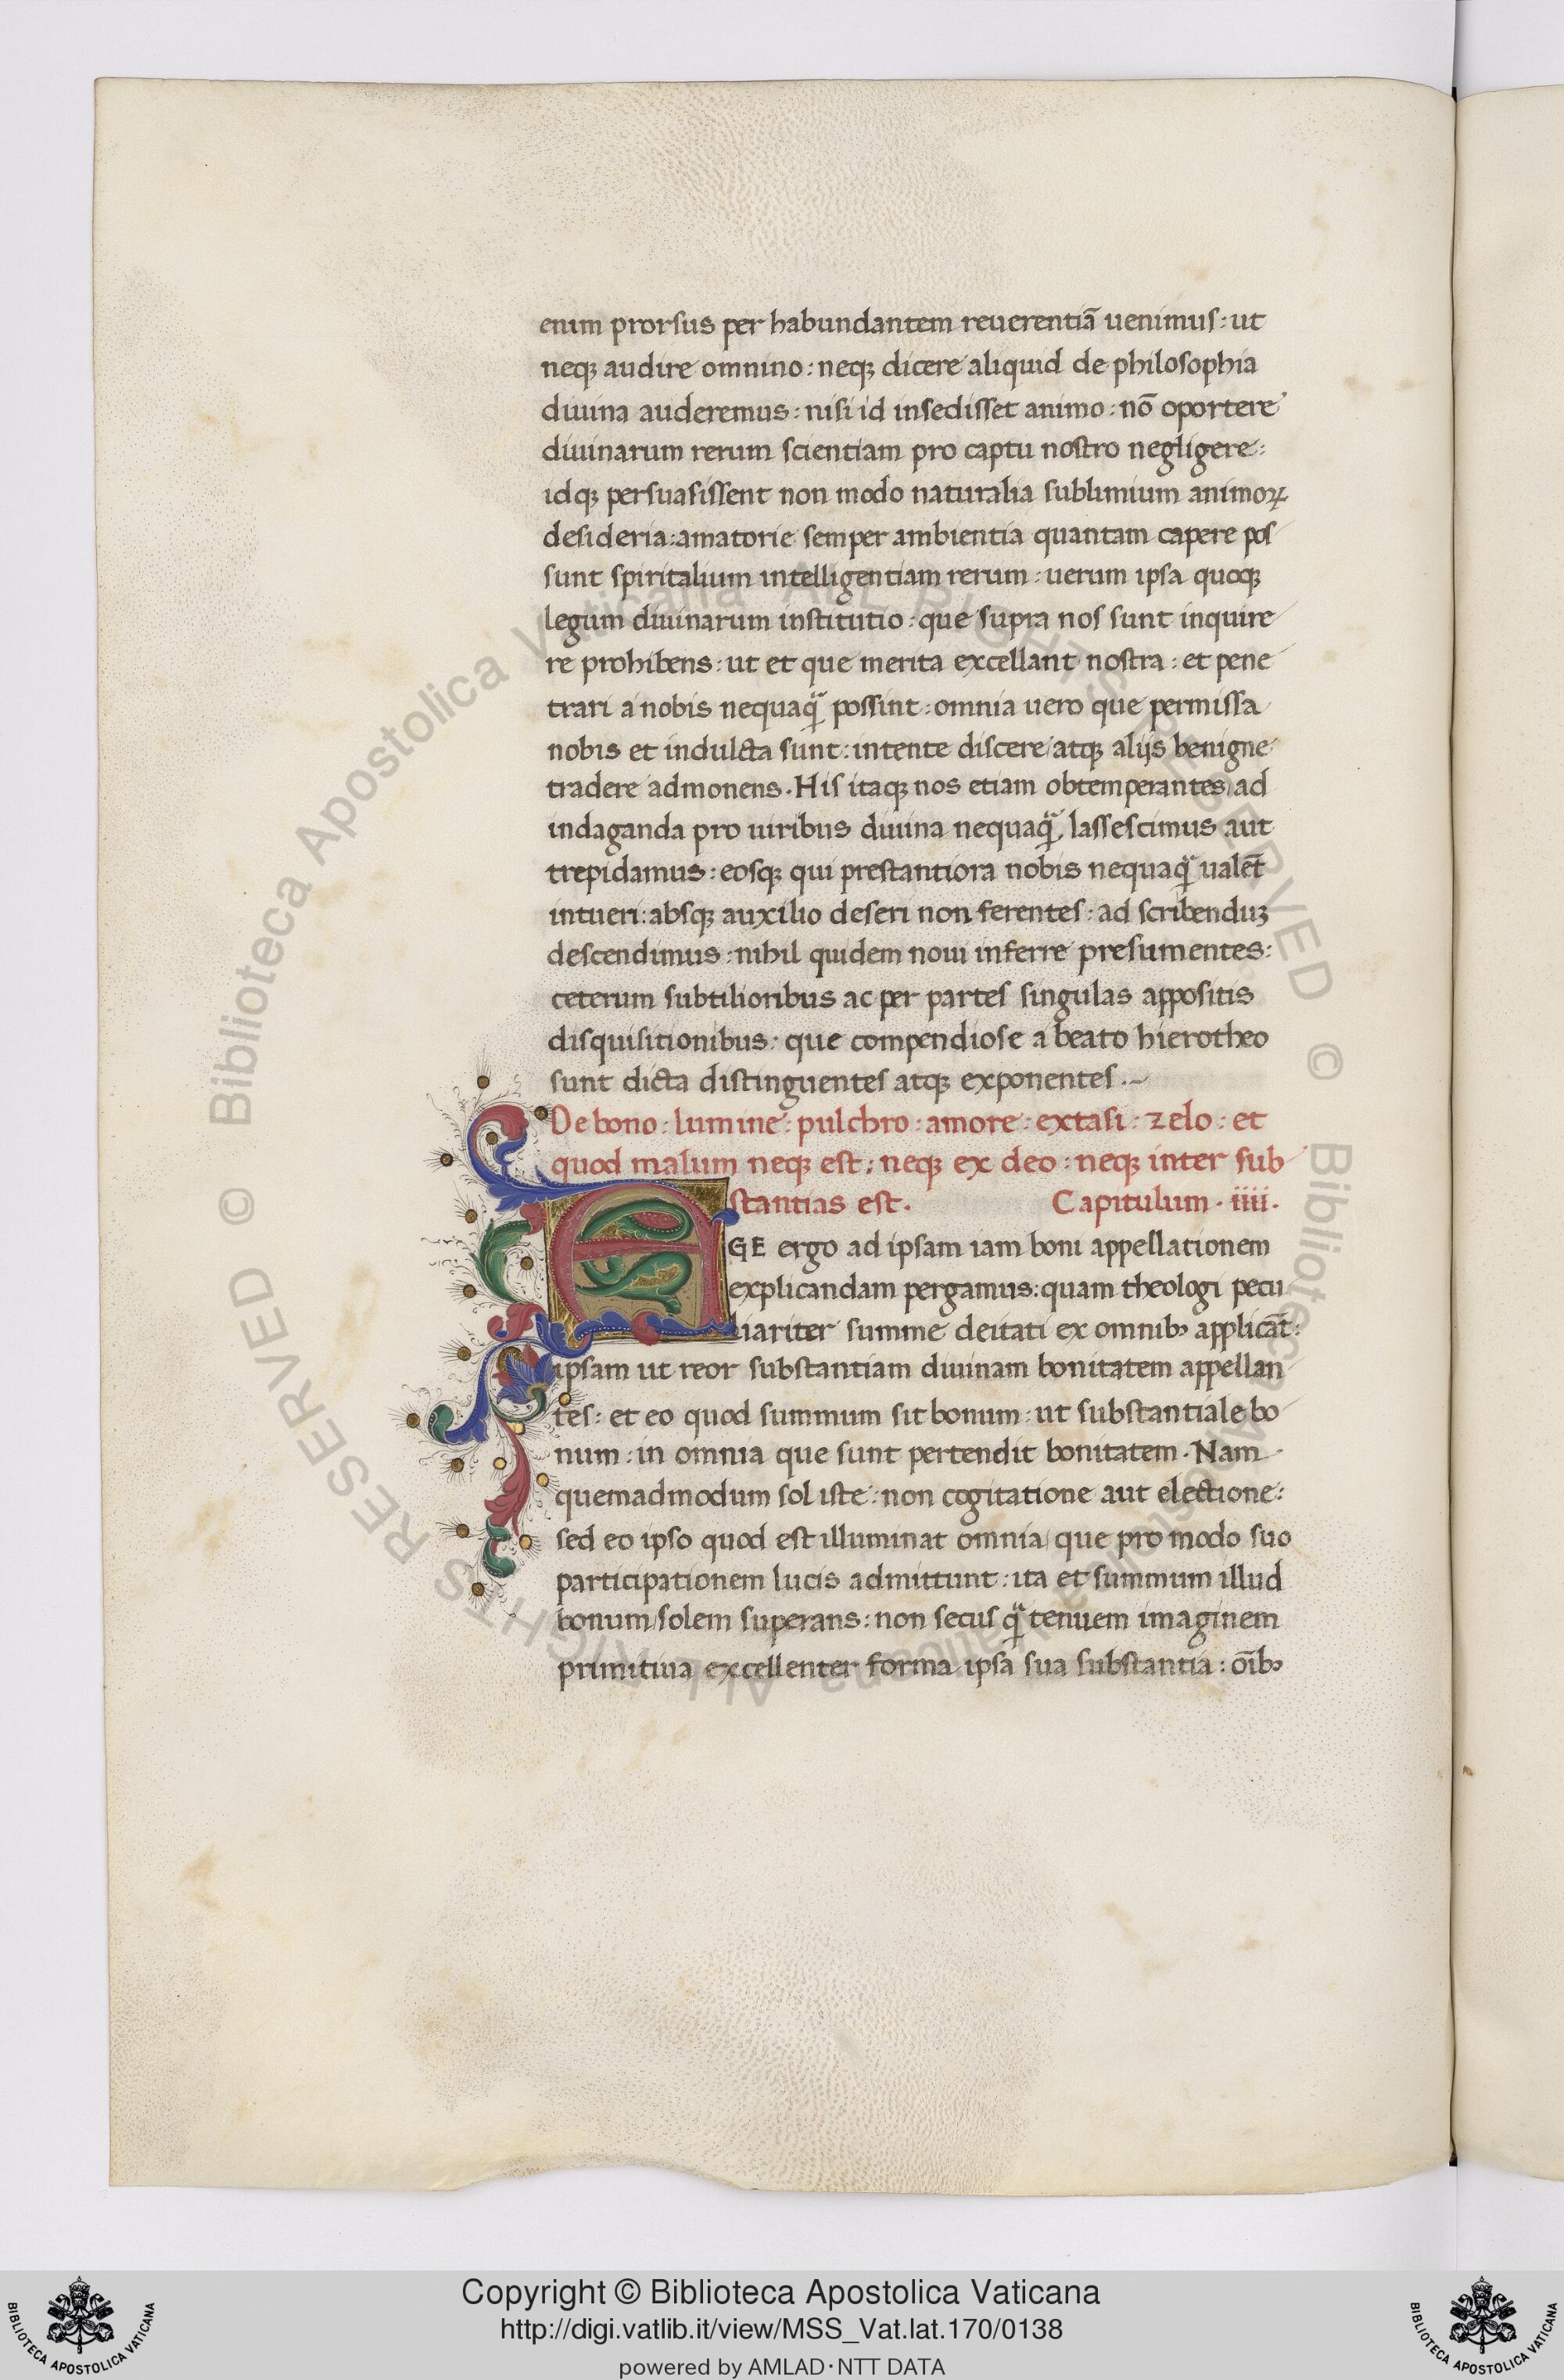 enim prorsus per habundantem reuerentiā uenimus: ut
neqꝫ audire omnino: neqꝫ dicere aliquid de philosophia
diuina auderemus: nisi id insedisset animo: nō oportere
diuinarum rerum scientiam pro captu nostro negligere:
idqꝫ persuasissent non modo naturalia sublimium animoꝝ
desideria: amatorie semper ambientia quantam capere pos
sunt spiritalium intelligentiam rerum: uerum ipsa quoqꝫ
legum diuinarum institutio: que supra nos sunt inquire
re prohibens: ut et que merita excellant nostra: et pene
trari a nobis nequaqᷓ possint: omnia uero que permissa
nobis et indulcta sunt: intente discere atqꝫ alijs benigne
tradere admonens. His itaqꝫ nos etiam obtemperantes/ad
indaganda pro uiribus diuina nequaqᷓ lassescimus aut
trepidamus: eosqꝫ qui prestantiora nobis nequaqᷓ ualēt
intueri: absqꝫ auxilio deseri non ferentes: ad scribenduꝫ
descendimus: nihil quidem noui inferre presumentes:
ceterum subtilioribus ac per partes singulas appositis
disquisitionibus: que compendiose a beato hierotheo
sunt dicta distinguentes atqꝫ exponentes.~
De bono: lumine: pulchro: amore: extasi: zelo: et
quod malum neqꝫ est: neqꝫ ex deo: neqꝫ inter sub
stantias est. Capitulum. iiii.
AGE ergo ad ipsam iam boni appellationem
explicandam pergamus: quam theologi pecu
liariter summe deitati ex omnibꝫ applicāt:
ipsam ut reor substantiam diuinam bonitatem appellan
tes: et eo quod summum sit bonum: ut substantiale bo
num: in omnia que sunt pertendit bonitatem. Nam
quemadmodum sol iste: non cogitatione aut electione:
sed eo ipso quod est illuminat omnia/que pro modo suo
participationem lucis admittunt: ita et summum illud
bonum/solem superans: non secus qᷓ tenuem imaginem
primitiua excellenter forma ipsa sua substantia: oībꝫ
© Biblioteca Apostolica Vaticana ALL RIGHTS RESERVED © Biblioteca Apostolica Vaticana ALL RIGHTS RESERVED
BIBLIOTECA APOSTOLICA VATICANA
Copyright © Biblioteca Apostolica Vaticana
http://digi.vatlib.it/view/MSS_Vat.lat.170/0138
powered by AMLAD·NTT DATA
BIBLIOTECA APOSTOLICA VATICANA